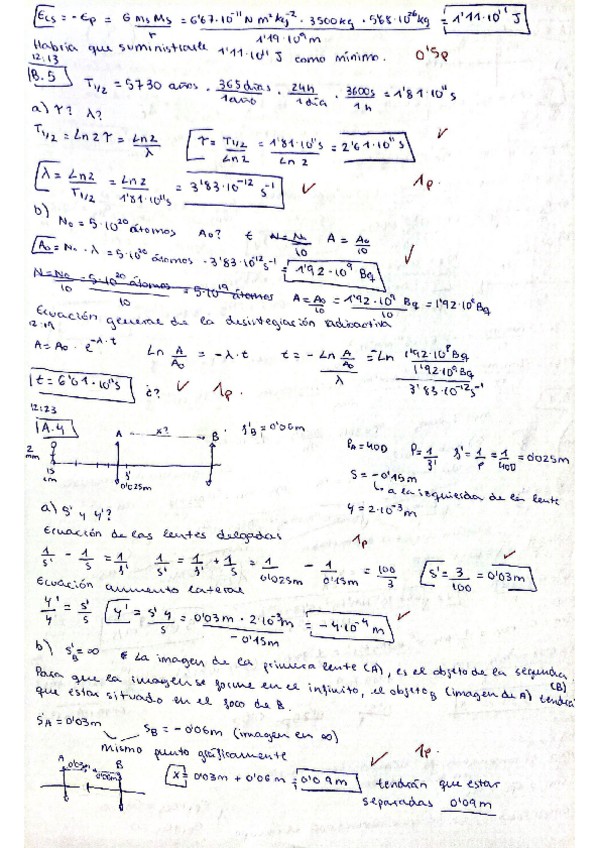 Ecs = -Ep = G ms Ms / r = 6'67·10⁻¹¹ N m² kg⁻² · 3500kg · 5'68·10²⁶kg / 1'19·10⁹m = 1'11·10¹¹ J
Habría que suministrarle 1'11·10¹¹ J como mínimo. 0'5p
12:13
B.5 T1/2 = 5730 años · 365días/1año · 24h/1día · 3600s/1h = 1'81·10¹¹s
a) τ? λ?
T1/2 = Ln2 τ = Ln2/λ τ = T1/2 / Ln2 = 1'81·10¹¹s / Ln 2 = 2'61·10¹¹s
λ = Ln2 / T1/2 = Ln2 / 1'81·10¹¹s = 3'83·10⁻¹² s⁻¹ 1p.
b) N₀ = 5·10²⁰ átomos A₀? t N = N₀/10 A = A₀/10
A₀ = N₀ · λ = 5·10²⁰ átomos · 3'83·10⁻¹² s⁻¹ = 1'92·10⁹ Bq
N = N₀/10 = 5·10²⁰ átomos / 10 = 5·10¹⁹ átomos A = A₀/10 = 1'92·10⁹ Bq / 10 = 1'92·10⁸ Bq
Ecuación general de la desintegración radioactiva
12:19
A = A₀ · e^(-λ·t) Ln A/A₀ = -λ·t t = - Ln A/A₀ / λ = -Ln 1'92·10⁸Bq / 1'92·10⁹Bq / 3'83·10⁻¹² s⁻¹
t = 6'01·10¹¹s ¿? 1p.
12:23
A.4 A x? B f'B = 0'06m
2 mm 15 cm f' 0'025m
PA = 40D P = 1/f' f' = 1/P = 1/40D = 0'025m
S = -0'15m
a la izquierda de la lente
y = 2·10⁻³m
a) s' y y'?
Ecuación de las lentes delgadas 1p
1/s' - 1/s = 1/f' 1/s' = 1/f' + 1/s = 1/0'025m - 1/0'15m = 100/3 s' = 3/100 = 0'03m
Ecuación aumento lateral
y'/y = s'/s y' = s' y / s = 0'03m · 2·10⁻³m / -0'15m = -4·10⁻⁴ m
b) s'B = ∞ La imagen de la primera lente (A), es el objeto de la segunda (B)
Para que la imagen se forme en el infinito, el objeto B (imagen de A) tendrá
que estar situado en el foco de B.
s'A = 0'03m sB = -0'06m (imagen en ∞)
mismo punto gráficamente 1p.
A 0'03m 0'06m B x = 0'03m + 0'06m = 0'09m tendrán que estar
separadas 0'09m